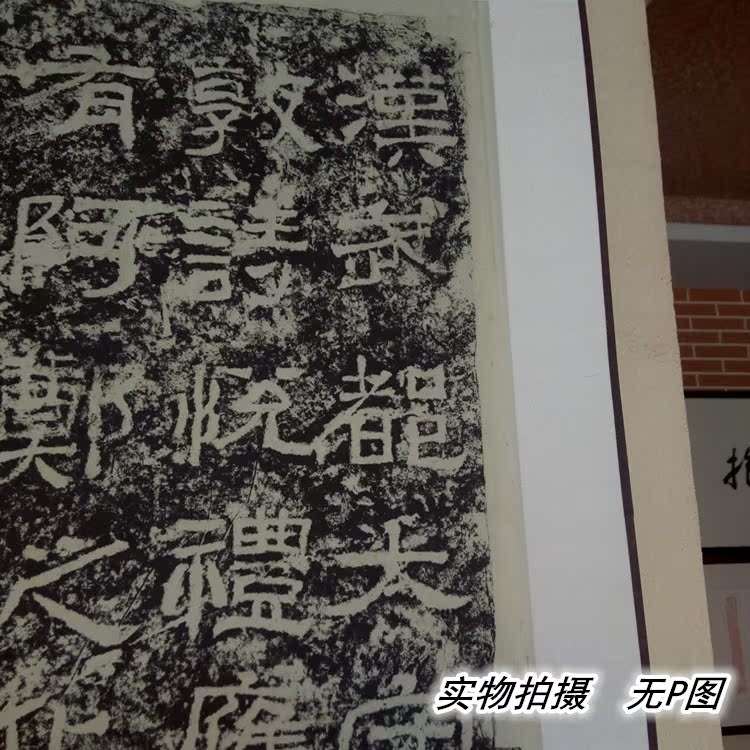 漢武都大守
敦詩悦禮膺
有阿鄭之化
实物拍摄 无P图